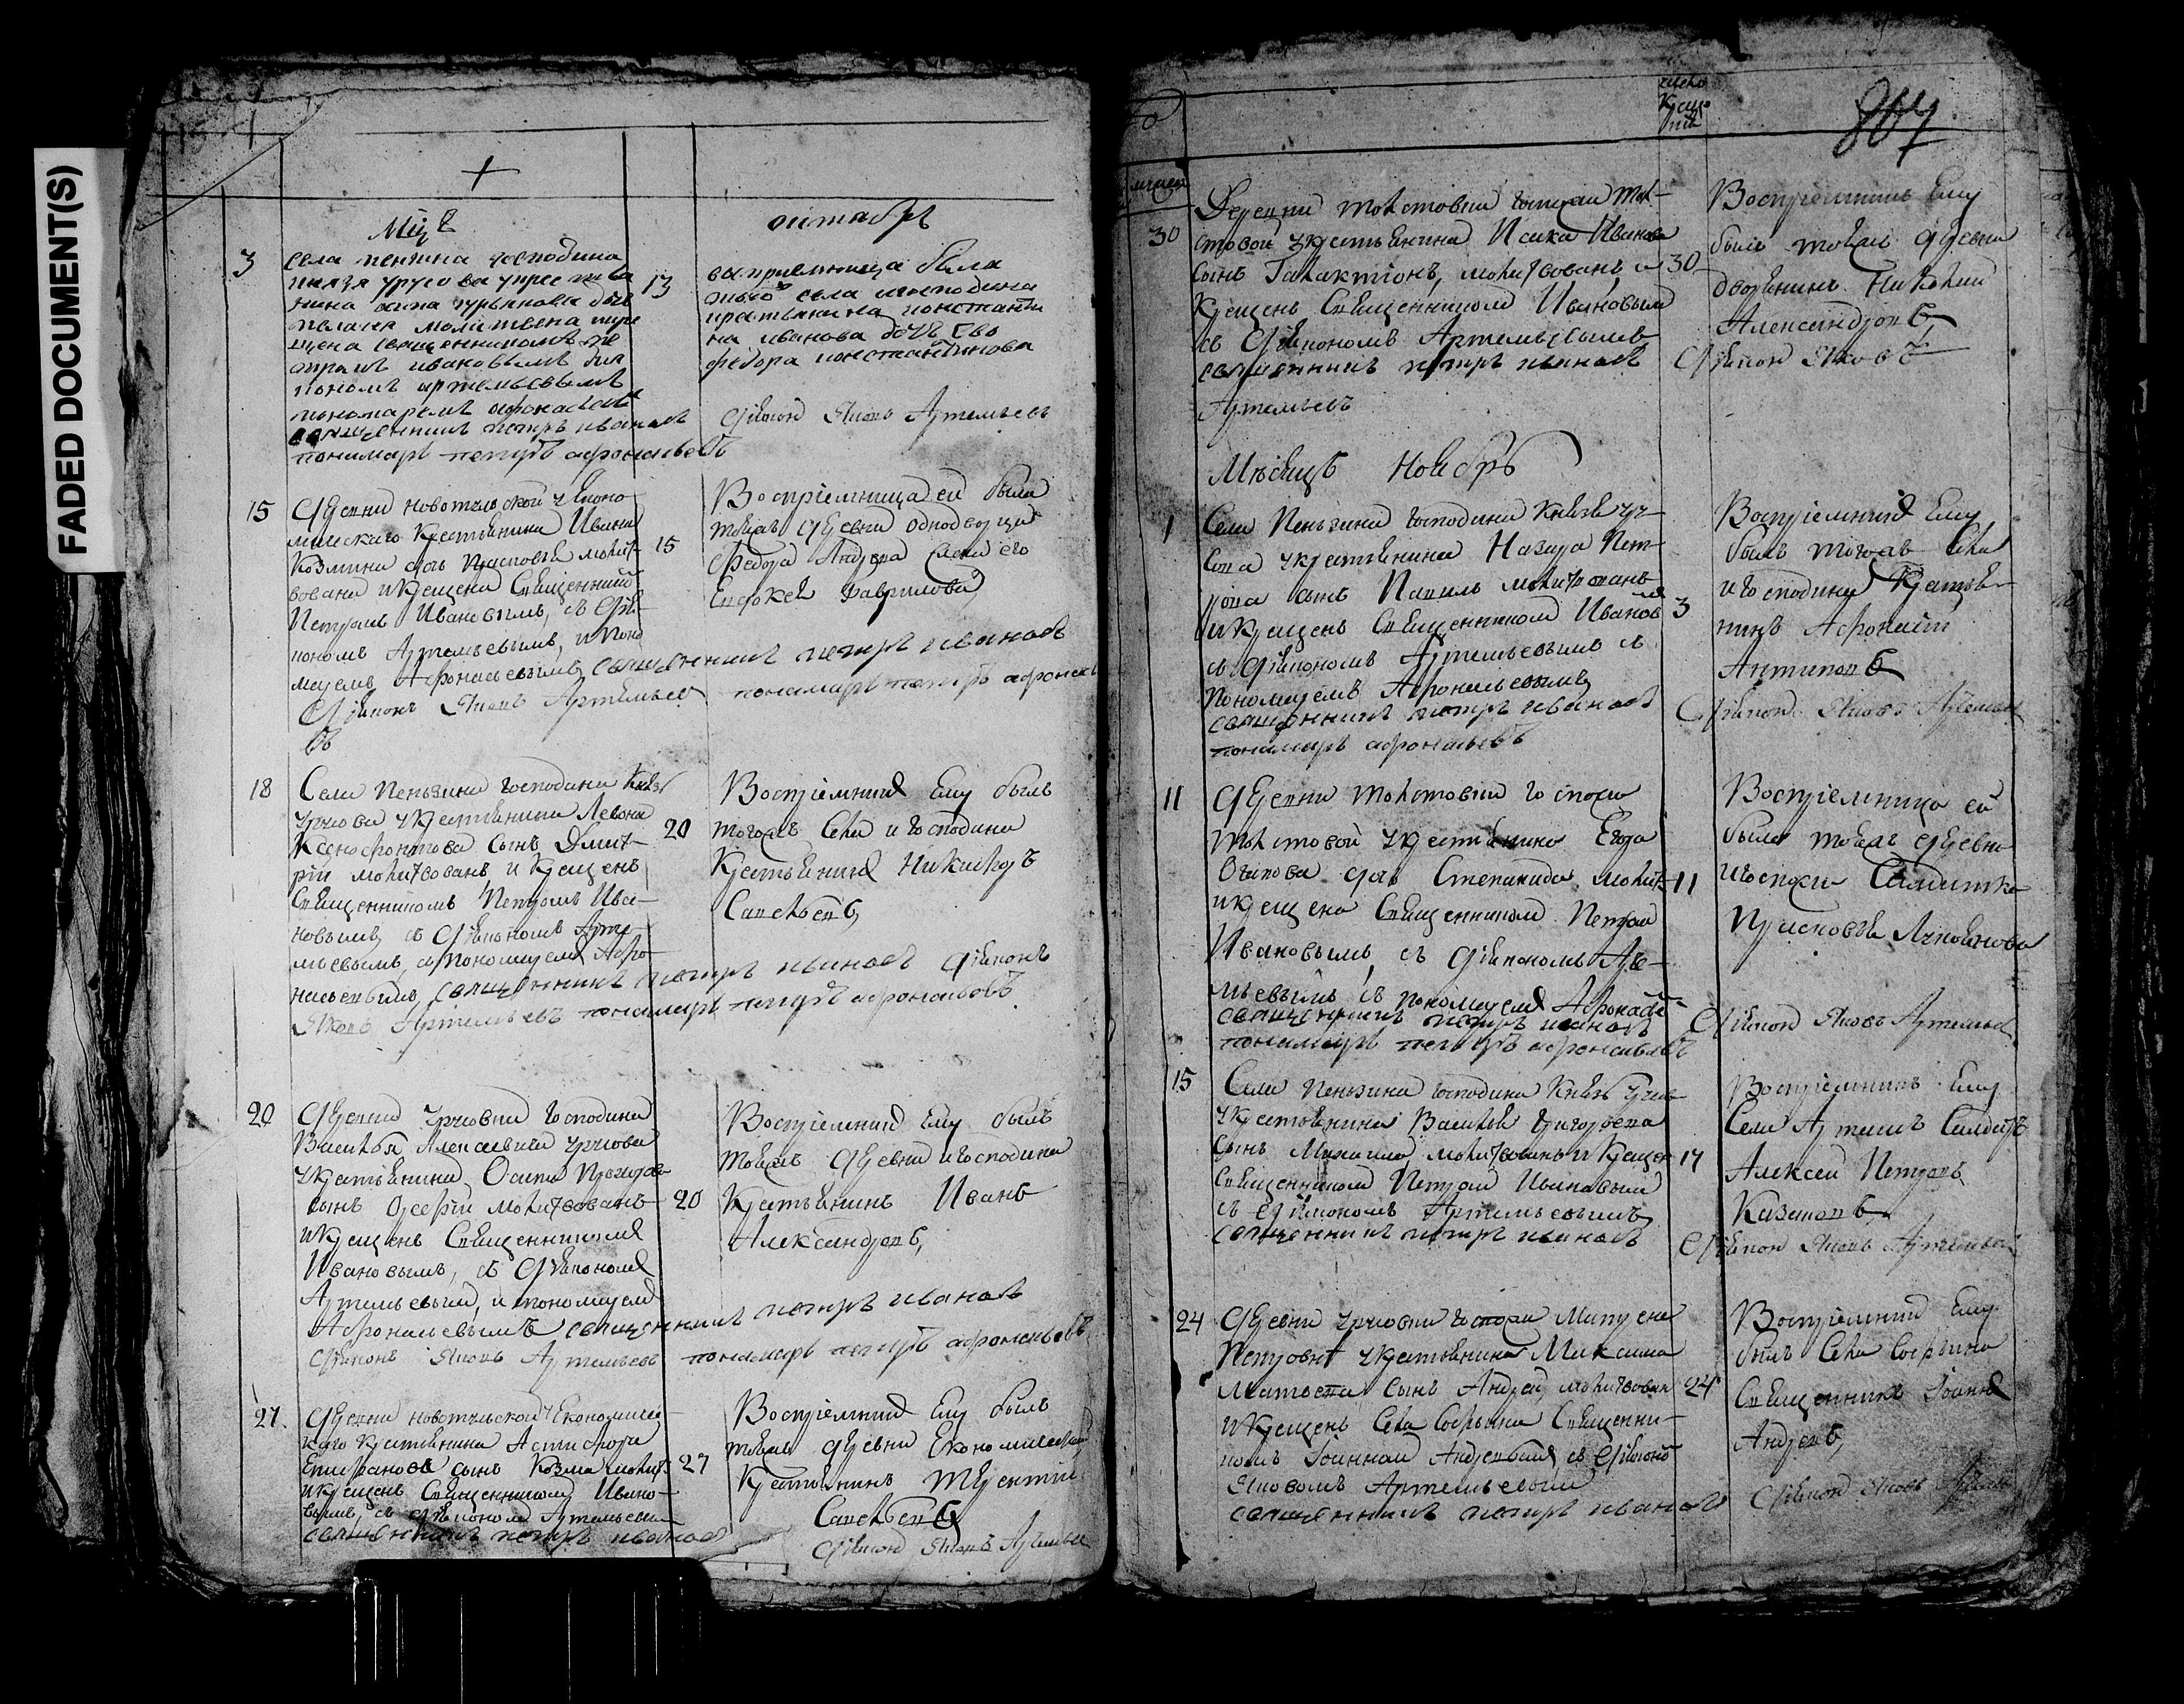 FADED DOCUMENT(S)
807
Мцъ октабрь
3
села пензина господина
князя урусова у крестья
нина
пелагея молитвена и кре
щена священникомъ пе
тромъ ивановымъ дия
кономъ артемьевымъ
пономаремъ афонасьевымъ
священникъ петръ ивановъ
пономарь петръ афонасьевъ
13
восприемница была
того села и господина
крестьянина константи
на иванова дочь ево
федора константинова
Діяконъ Яковъ Артемьевъ
15
Деревни новотульской Еконо
мическаго Крестьянина Ивана
Козмина дочь Прасковья молит
вована и крещена Священникомъ
Петромъ Ивановымъ, съ Дія
кономъ Артемьевымъ, и Поно
маремъ Афонасьевымъ священникъ петръ ивановъ
Діяконъ Яковъ Артемьевъ пономарь петръ афонась
евъ
15
Воспріемница ей была
тояжъ деревни однодворца
Федора Андреева жена его
Евдокея Гаврилова
18
Села Пензина господина Князя
Урусова у крестьянина Левона
Ксенофонтова сынъ Дмит-
рій молитвованъ и крещенъ
Священникомъ Петромъ Ива-
новымъ, съ Діякономъ Арте-
мьевымъ, и пономаремъ Афо-
насьевымъ, священникъ петръ ивановъ Діяконъ
Яковъ Артемьевъ пономарь петръ афонасьевъ
20
Воспріемникъ Ему былъ
тогожъ Села и господина
Крестьянинъ Никифоръ
Савельевъ,
20
Деревни Урусовки господина
Василья Алексеевича Урусова
у крестьянина Осипа
сынъ молитвованъ
и крещенъ Священникомъ
Ивановымъ, съ Діякономъ
Артемьевымъ, и пономаремъ
Афонасьевымъ священникъ петръ ивановъ
Діяконъ Яковъ Артемьевъ пономарь петръ афонасьевъ
20
Воспріемникъ Ему былъ
тояжъ деревни и господина
Крестьянинъ Иванъ
Александровъ,
27.
Деревни новотульской Економичес-
каго крестьянина
Епифанова сынъ Козма молитв
и крещенъ Священникомъ Ивано-
вымъ, съ діякономъ Артемьевымъ
священникъ петръ ивановъ
27
Воспріемникъ Ему былъ
тояжъ деревни Економической
Крестьянинъ Терентій
Савельевъ
Діяконъ Яковъ Артемьевъ
30
Деревни Толстовки госпожи Тол-
стовой у крестьянина Исака Иванова
сынъ Галактіонъ, молитвованъ, и
Крещенъ Священникомъ Ивановымъ
съ Діякономъ Артемьевымъ
священникъ петръ ивановъ
Артемьевъ
30
Воспріемникъ Ему
былъ тояжъ деревни
дворянинъ Николай
Александровъ,
Діяконъ Яковъ
Мѣсяцъ Ноябрь
1
Села Пензина господина Князя Уру-
сова у крестьянина Назара Пет-
рова сынъ Павелъ молитвованъ
и Крещенъ Священникомъ Ивановымъ
съ Діякономъ Артемьевымъ и
Пономаремъ Афонасьевымъ
священникъ петръ ивановъ
пономарь афонасьевъ
3
Воспріемникъ Ему
былъ тогожъ Села
и господина Крестья-
нинъ Афонасій
Антиповъ
Діяконъ Яковъ Артемьевъ
11
Деревни Толстовки госпожи
Толстовой у крестьянина Егора
Осипова дочь Степанида молитв
и крещена Священникомъ Петромъ
Ивановымъ, съ Діякономъ Арте-
мьевымъ съ пономаремъ Афонась
священникъ петръ ивановъ
пономарь петръ афонасьевъ
11
Воспріемница ей
была тояжъ деревни
и госпожи Салдатка
Прасковья
Діяконъ Яковъ Артемьевъ
15
Села Пензина господина Князя Урусова
у крестьянина Василья Григорьева
сынъ Михаило молитвованъ и Крещен
Священникомъ Петромъ Ивановымъ
съ Діякономъ Артемьевымъ
священникъ петръ ивановъ
17
Воспріемникъ Ему
Села Салдатъ
Алексей Петровъ
Казаковъ
Діяконъ Яковъ Артемьевъ
24
Деревни Урусовки госпожи
Петровны у крестьянина Максима
Матвеева сынъ Андрей, молитвован
и Крещенъ Села Священни-
комъ Іоанномъ Андреевымъ съ Діякономъ
Яковомъ Артемьевымъ
священникъ петръ ивановъ
24
Воспріемникъ Ему
былъ Села
Священникъ Іоаннъ
Андреевъ,
Діяконъ Яковъ Артемьевъ